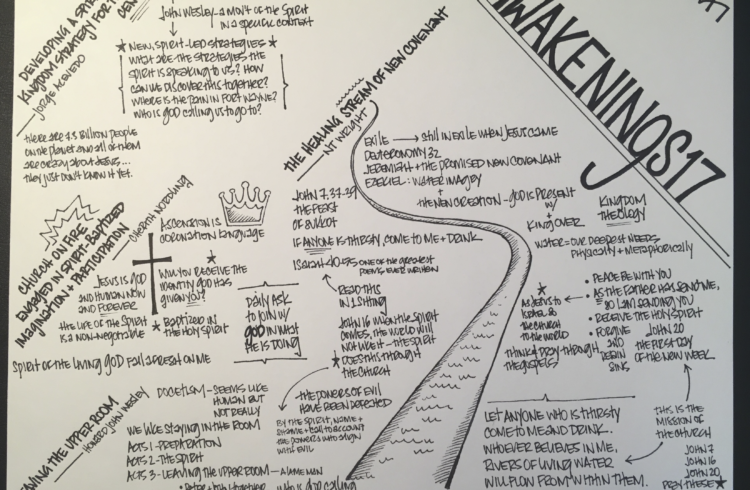 AWAKENINGS17
DEVELOPING A SPIRIT
KINGDOM STRATEGY FOR T
CEN
JORGE ACEVEDO
JOHN WESLEY - A MOV'T OF THE SPIRIT
IN A SPECIFIC CONTEXT
★ NEW, SPIRIT-LED STRATEGIES ★
WHAT ARE THE STRATEGIES THE
SPIRIT IS SPEAKING TO US? HOW
CAN WE DISCOVER THIS TOGETHER?
WHERE IS THE PAIN IN FORT WAYNE?
WHO IS GOD CALLING US TO GO TO?
THERE ARE 7.3 BILLION PEOPLE
ON THE PLANET AND ALL OF THEM
ARE CRAZY ABOUT JESUS...
THEY JUST DON'T KNOW IT YET.
CHURCH ON FIRE
ENGAGED IN SPIRIT-BAPTIZED
IMAGINATION + PARTICIPATION
CHERITH NORDLING
ASCENSION IS
CORONATION LANGUAGE
JESUS IS GOD
AND HUMAN NOW
AND FOREVER
THE LIFE OF THE SPIRIT
IS A NON-NEGOTIABLE
★
WILL YOU RECEIVE THE
IDENTITY GOD HAS
GIVEN YOU?
★ BAPTIZED IN
THE HOLY SPIRIT
DAILY ASK
TO JOIN W/
GOD IN WHAT
HE IS DOING
SPIRIT OF THE LIVING GOD FALL AFRESH ON ME
AVING THE UPPER ROOM
HOWARD JOHN WESLEY
DOCETISM - SEEMS LIKE
HUMAN BUT
NOT REALLY
WE LIKE STAYING IN THE ROOM
ACTS 1 - PREPARATION
ACTS 2 - THE SPIRIT
ACTS 3 - LEAVING THE UPPER ROOM - A LAME MAN
WHO IS GOD CALLING
THE HEALING STREAM OF NEW COVENANT
NT WRIGHT
EXILE → STILL IN EXILE WHEN JESUS CAME
DEUTERONOMY 32
JEREMIAH + THE PROMISED NEW COVENANT
EZEKIEL: WATER IMAGRY
+
THE NEW CREATION - GOD IS PRESENT
W/
+
KING OVER
KINGDOM
THEOLOGY
WATER = OUR DEEPEST NEEDS
PHYSICALLY + METAPHORICALLY
JOHN 7.37-39
THE FEAST
OF SUKKOT
IF ANYONE IS THIRSTY, COME TO ME + DRINK
ISAIAH 40-55 ONE OF THE GREATEST
POEMS EVER WRITTEN
READ THIS
IN 1 SITTING
JOHN 16 WHEN THE SPIRIT
COMES, THE WORLD WILL
NOT LIKE IT - THE SPIRIT
★ DOES THIS THROUGH
THE CHURCH
THE POWERS OF EVIL
HAVE BEEN DEFEATED
BY THE SPIRIT, NAME +
SHAME + CALL TO ACCOUNT
THE POWERS WHO ALIGN
WITH EVIL
★
AS JESUS TO
ISRAEL SO
THE CHURCH
TO THE WORLD
THINK + PRAY THROUGH
THE GOSPELS
• PEACE BE WITH YOU
• AS THE FATHER HAS SEND ME,
SO I AM SENDING YOU
• RECEIVE THE HOLY SPIRIT
• FORGIVE
AND
RETAIN
SINS
JOHN 20
THE FIRST DAY
OF THE NEW WEEK
THIS IS THE
MISSION OF
THE CHURCH
JOHN 7
JOHN 16
JOHN 20
PRAY THESE ★
LET ANYONE WHO IS THIRSTY
COME TO ME AND DRINK.
WHOEVER BELIEVES IN ME,
RIVERS OF LIVING WATER
WILL FLOW FROM WITHIN THEM.